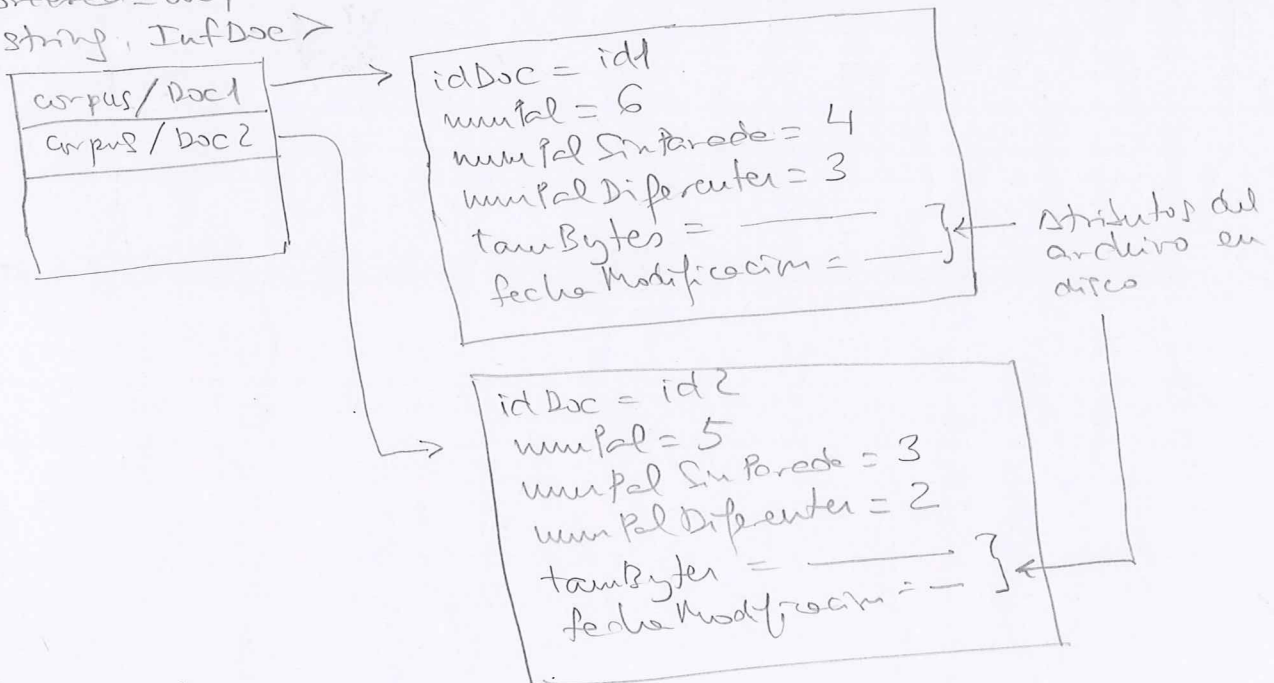 string, InfDoc>
corpus/Doc1
corpus/Doc2
idDoc = id1
numPal = 6
numPalSinParada = 4
numPalDiferentes = 3
tamBytes =
fechaModificacion =
Atributos del
archivo en
disco
idDoc = id2
numPal = 5
numPalSinParada = 3
numPalDiferentes = 2
tamBytes =
fechaModificacion =